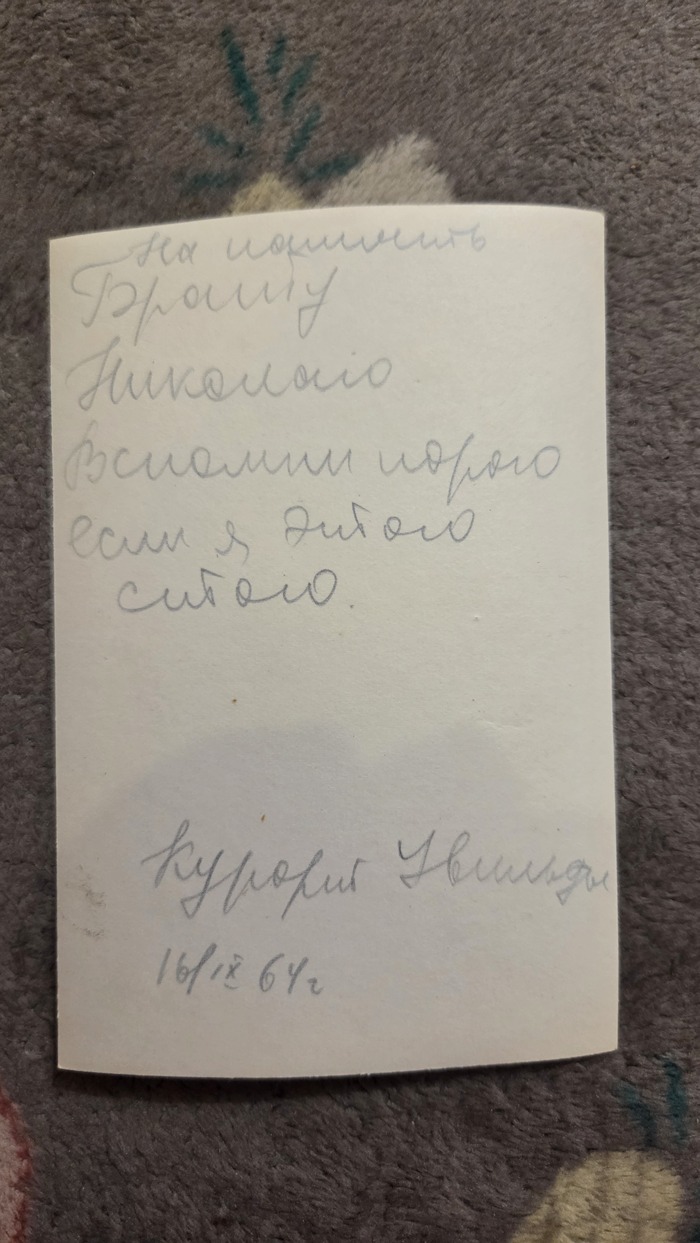 На память
Брату
Николаю
Вспомни порою
если я этого
стою.
Курорт Увильды
16/IX 64г